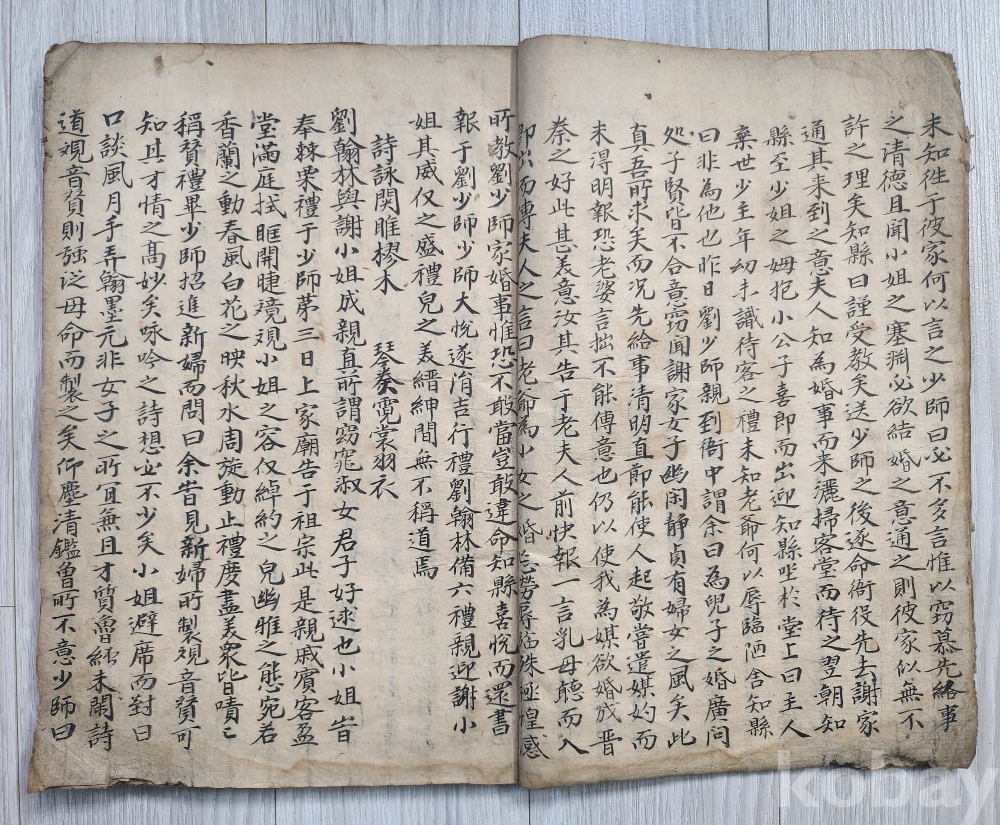 未知徃于彼家何以言之少師曰必不多言惟以窃慕先給事
之清德且聞小姐之塞淵必欲結婚之意通之則彼家似無不
許之理矣知縣曰謹受教矣送少師之後遂命衙役先去謝家
通其来到之意夫人知為婚事而来灑掃客堂而待之翌朝知
縣至少姐之姆抱小公子喜即而出迎知縣坐於堂上曰主人
棄世少主年幼未識待客之禮未知老爺何以辱臨陋舎知縣
曰非為他也昨日劉少師親到衙中謂余曰為兒子之婚廣问
处子賢皆不合意窃闻謝家女子幽闲静貞有婦女之風矣此
真吾所求矣而况先給事清明直節能使人起敬嘗遣媒妁而
未得明報恐老婆言拙不能傳意也仍以使我為媒欲婚成晋
秦之好此甚美意汝其告于老夫人前快報一言乳母聴而入
即出而傳夫人之言曰老爺為小女之婚 勞辱臨殊極惶感
所教劉少師家婚事惟恐不敢當豈敢違命知縣喜悅而還書
報于劉少師少師大悅遂涓吉行禮劉翰林備六禮親迎謝小
姐其威仪之盛禮皃之美縉紳間無不稱道焉
詩詠関雎樛木 琴奏霓裳羽衣
劉翰林與謝小姐成親真所謂窈窕淑女君子好逑也小姐告
奉棘栗禮于少師苐三日上家廟告于祖宗此是親戚賓客盈
堂滿庭拭眶開睫境視小姐之容仪綽約之皃幽雅之態宛若
香蘭之動春風白花之映秋水周旋動止禮慶盡美衆皆嘖〻
稱賛禮畢少師招進新婦而問曰余昔見新婦所製覌音賛可
知其才情之髙妙矣咏吟之詩想必不少矣小姐避席而對曰
口談風月手弄翰墨元非女子之所宜無且才質魯 未開詩
道覌音賛則強從母命而製之矣仰塵清鑑曾所不意少師曰
kobay